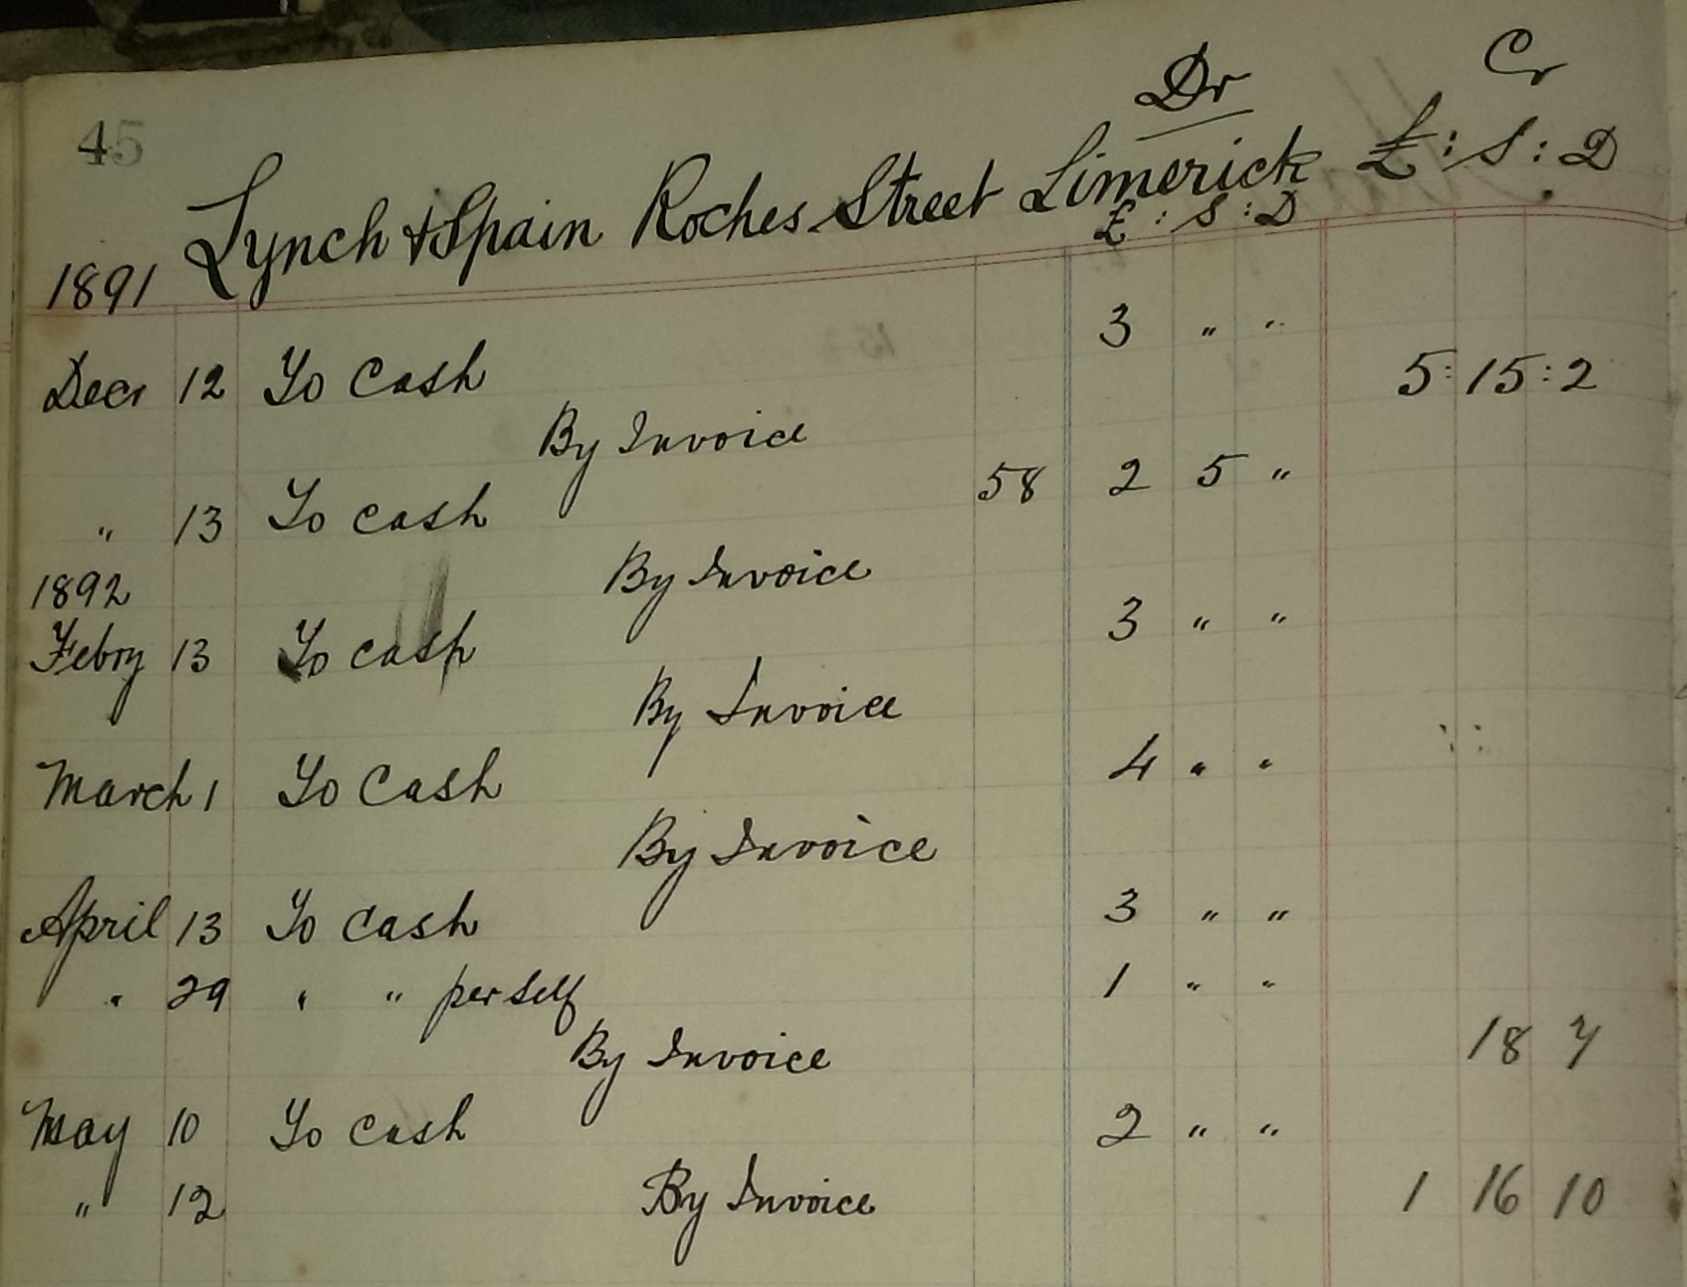 45
Dr Cr
Lynch & Spain Roches Street Limerick £ : S : D
£ : S : D
1891
Decr 12 To Cash 3 " "
By Invoice 5 : 15 : 2
" 13 To Cash 58 2 5 "
By Invoice
1892
Febry 13 To cash 3 " "
By Invoice
March 1 To Cash 4 " "
By Invoice
April 13 To Cash 3 " "
" 29 " " per self 1 " "
By Invoice 18 7
May 10 To Cash 2 " "
" 12 By Invoice 1 16 10